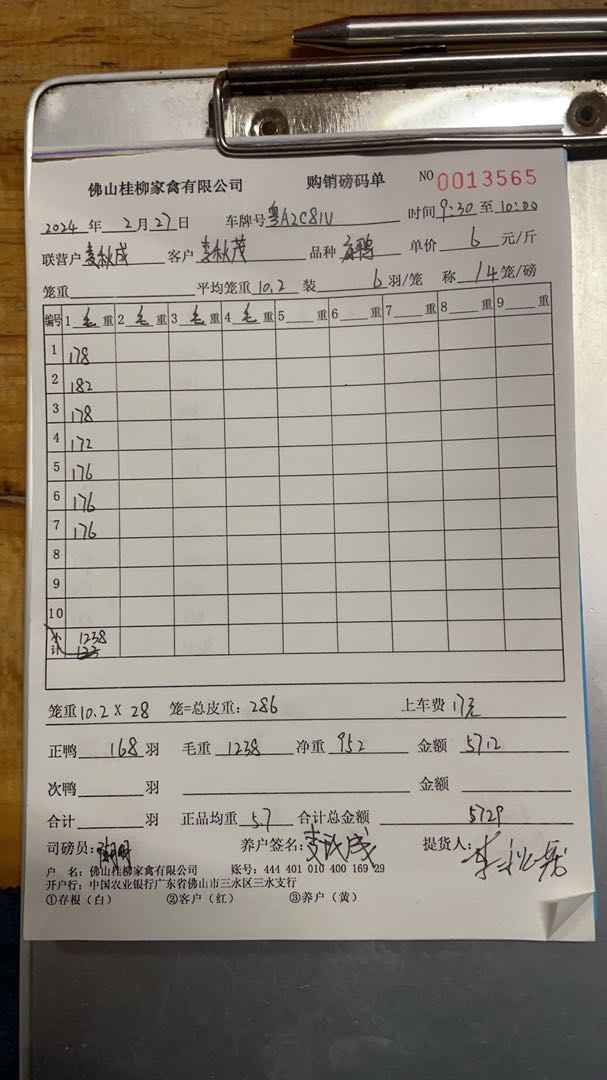 佛山桂柳家禽有限公司 购销磅码单 NO 0013565
2024 年 2 月 27 日 车牌号 粤A2C81V 时间 9:30 至 10:00
联营户 秋成 客户 李秋茂 品种 鸭 单价 6 元/斤
笼重 平均笼重 10.2 装 6 羽/笼 称 14 笼/磅
编号 1 毛 重 2 毛 重 3 毛 重 4 毛 重 5 重 6 重 7 重 8 重 9 重
1 178
2 182
3 178
4 172
5 176
6 176
7 176
8
9
10
小计 1238
笼重 10.2 X 28 笼=总皮重: 286 上车费 17元
正鸭 168 羽 毛重 1238 净重 952 金额 5712
次鸭 羽 金额
合计 羽 正品均重 5.7 合计总金额 5729
司磅员: 养户签名: 成 提货人: 李秋茂
户 名: 佛山桂柳家禽有限公司 账号: 444 401 010 400 169 29
开户行: 中国农业银行广东省佛山市三水区三水支行
①存根（白） ②客户（红） ③养户（黄）